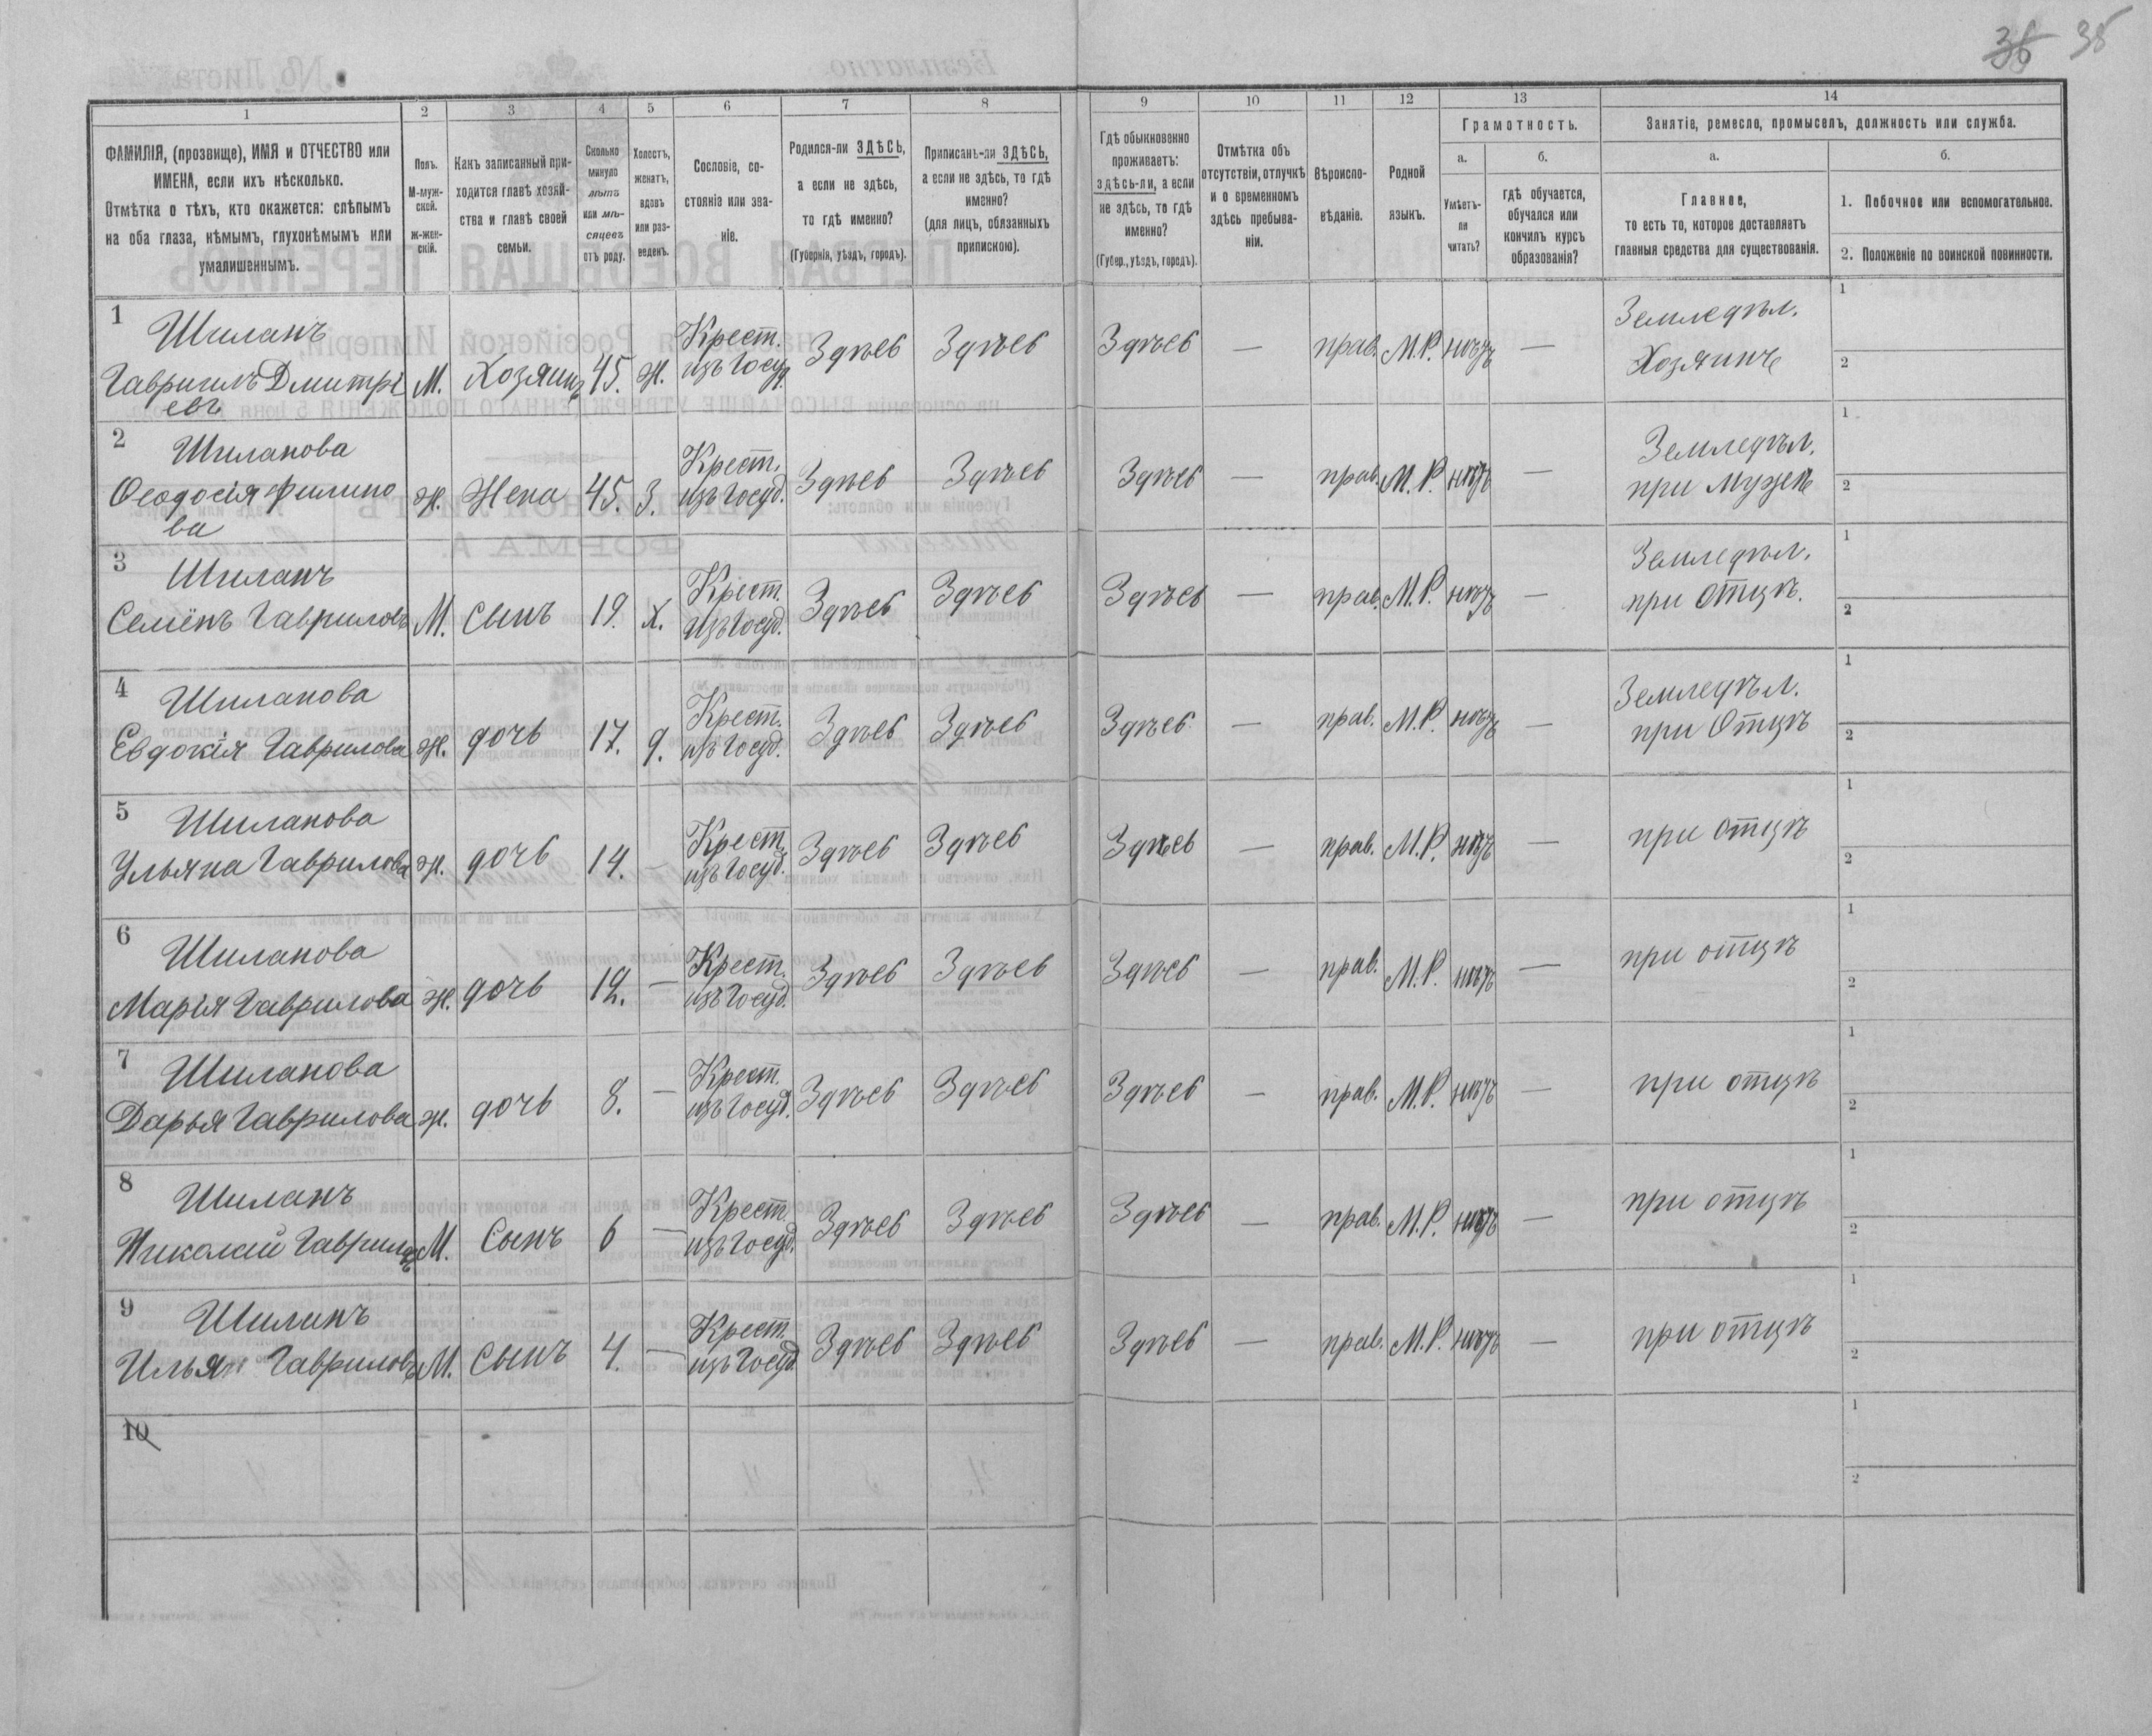 36 35
1 2 3 4 5 6 7 8 9 10 11 12 13 14
ФАМИЛІЯ, (прозвище), ИМЯ и ОТЧЕСТВО или
ИМЕНА, если ихъ нѣсколько.
Отмѣтка о тѣхъ, кто окажется: слѣпымъ
на оба глаза, нѣмымъ, глухонѣмымъ или
умалишеннымъ.
Полъ.
М-муж-
ской.
ж-жен-
скій.
Какъ записанный при-
ходится главѣ хозяй-
ства и главѣ своей
семьи.
Сколько
минуло
лѣтъ
или мѣ-
сяцевъ
отъ роду.
Холостъ,
женатъ,
вдовъ
или раз-
веденъ.
Сословіе, со-
стояніе или зва-
ніе.
Родился-ли ЗДѢСЬ,
а если не здѣсь,
то гдѣ именно?
(Губернія, уѣздъ, городъ).
Приписанъ-ли ЗДѢСЬ,
а если не здѣсь, то гдѣ
именно?
(для лицъ, обязанныхъ
припискою).
Гдѣ обыкновенно
проживаетъ:
здѣсь-ли, а если
не здѣсь, то гдѣ
именно?
(Губер., уѣздъ, городъ).
Отмѣтка объ
отсутствіи, отлучкѣ
и о временномъ
здѣсь пребыва-
ніи.
Вѣроиспо-
вѣданіе.
Родной
языкъ.
Грамотность.
а. б.
Умѣетъ-
ли
читать?
гдѣ обучается,
обучался или
кончилъ курсъ
образованія?
Занятіе, ремесло, промыселъ, должность или служба.
а. б.
Главное,
то есть то, которое доставляетъ
главныя средства для существованія.
1. Побочное или вспомогательное.
2. Положеніе по воинской повинности.
1 Шиланъ Крест. Земледѣл. 1
Гавриилъ Дмитрі М. Хозяинъ 45. Ж. изъ Госуд. Здѣсь Здѣсь Здѣсь — прав. М.Р. нѣтъ — Хозяинъ 2
евъ
2 Шиланова Крест. Земледѣл. 1
Ѳеодосія Филипо ж. Жена 45. З. изъ Госуд. Здѣсь Здѣсь Здѣсь — прав. М.Р. нѣтъ — при мужѣ 2
ва
3 Шиланъ Крест. Земледѣл. 1
Семёнъ Гавриловъ М. Сынъ 19. Х. изъ Госуд. Здѣсь Здѣсь Здѣсь — прав. М.Р. нѣтъ — при отцѣ. 2
4 Шиланова Крест. Земледѣл. 1
Евдокія Гаврилова ж. дочь 17. д. изъ Госуд. Здѣсь Здѣсь Здѣсь — прав. М.Р. нѣтъ — при Отцѣ 2
5 Шиланова Крест. 1
Ульяна Гаврилова ж. дочь 14. — изъ Госуд. Здѣсь Здѣсь Здѣсь — прав. М.Р. нѣтъ — при отцѣ 2
6 Шиланова Крест. 1
Марія Гаврилова ж. дочь 12. — изъ Госуд. Здѣсь Здѣсь Здѣсь — прав. М.Р. нѣтъ — при отцѣ 2
7 Шиланова Крест. 1
Дарья Гаврилова ж. дочь 8. — изъ Госуд. Здѣсь Здѣсь Здѣсь — прав. М.Р. нѣтъ — при отцѣ 2
8 Шиланъ Крест. 1
Николай Гавриловъ М. Сынъ 6 — изъ Госуд. Здѣсь Здѣсь Здѣсь — прав. М.Р. нѣтъ — при отцѣ 2
9 Шиланъ Крест. 1
Илья Гавриловъ М. Сынъ 4. — изъ Госуд. Здѣсь Здѣсь Здѣсь — прав. М.Р. нѣтъ — при отцѣ 2
10 1
2